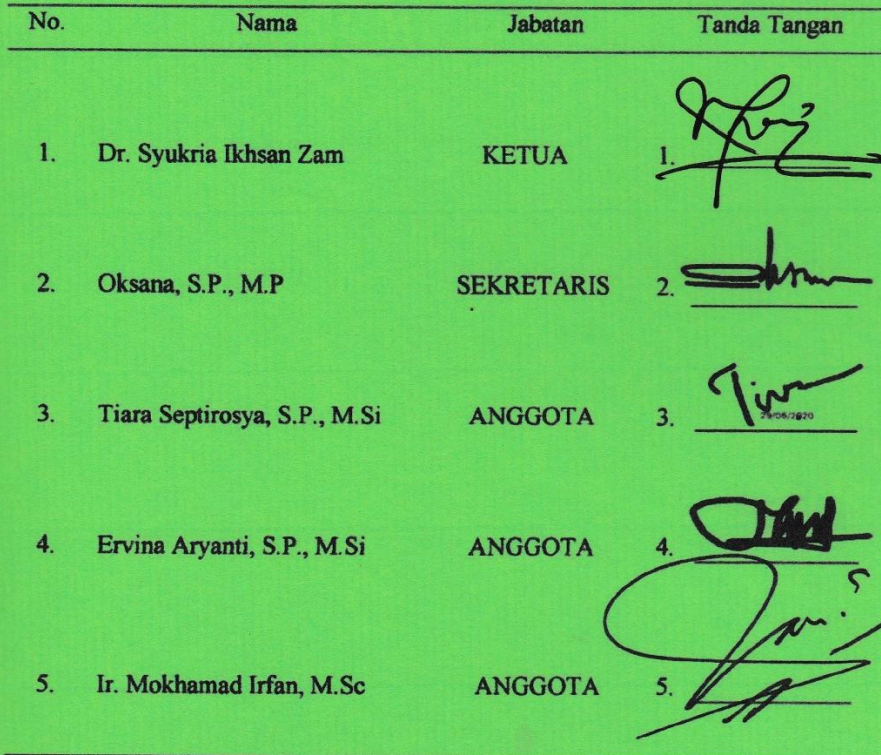 No. Nama Jabatan Tanda Tangan
1. Dr. Syukria Ikhsan Zam KETUA 1.
2. Oksana, S.P., M.P SEKRETARIS 2.
3. Tiara Septirosya, S.P., M.Si ANGGOTA 3.
4. Ervina Aryanti, S.P., M.Si ANGGOTA 4.
5. Ir. Mokhamad Irfan, M.Sc ANGGOTA 5.